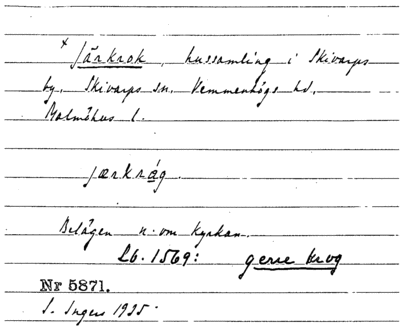 x Järkrok, hussamling i Skivarps
by, Skivarps sn, Vemmenhögs hd,
Malmöhus l.
jærkråg.
Belägen n. om kyrkan.
Lb. 1569: gerre krog
Nr 5871.
S. Ingers 1935.